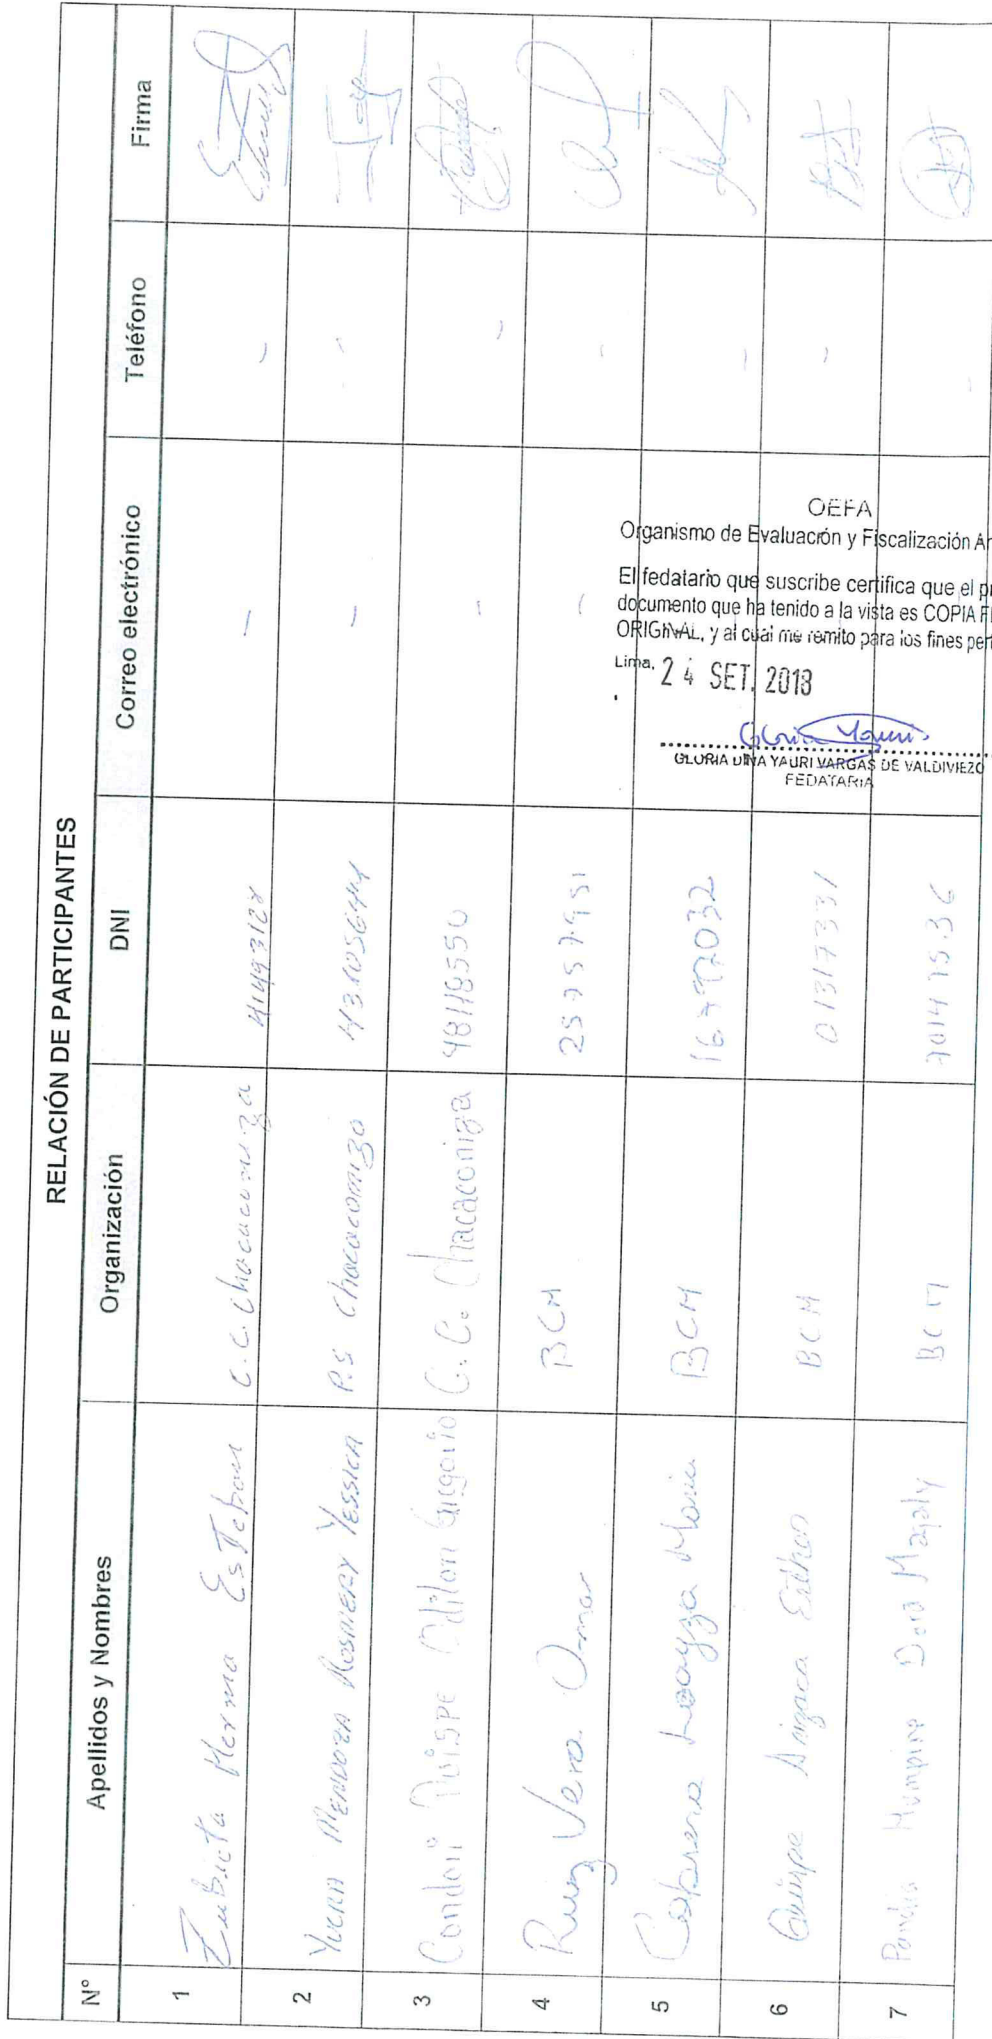 RELACIÓN DE PARTICIPANTES
Nº Apellidos y Nombres Organización DNI Correo electrónico Teléfono Firma
1 Zubieta Merma Esteban C.C. Chacaconiza - -
2 YUCRA MENDOZA ROSMERY YESSICA P.S Chacaconiza - -
3 Condori Quispe Odilon Gregorio C.C. Chacaconiza 48118550 - -
4 Ruiz Vera Omar BCM - -
5 Cabrera Loayza Maria BCM -
6 Quispe Aizaca Esther BCM 01317331 -
7 Dora Magaly BCM -
OEFA
Organismo de Evaluación y Fiscalización
El fedatario que suscribe certifica que el
documento que ha tenido a la vista es COPIA
ORIGINAL, y al cual me remito para los fines
Lima, 24 SET. 2018
GLORIA DINA YAURI VARGAS DE VALDIVIEZO
FEDATARIA